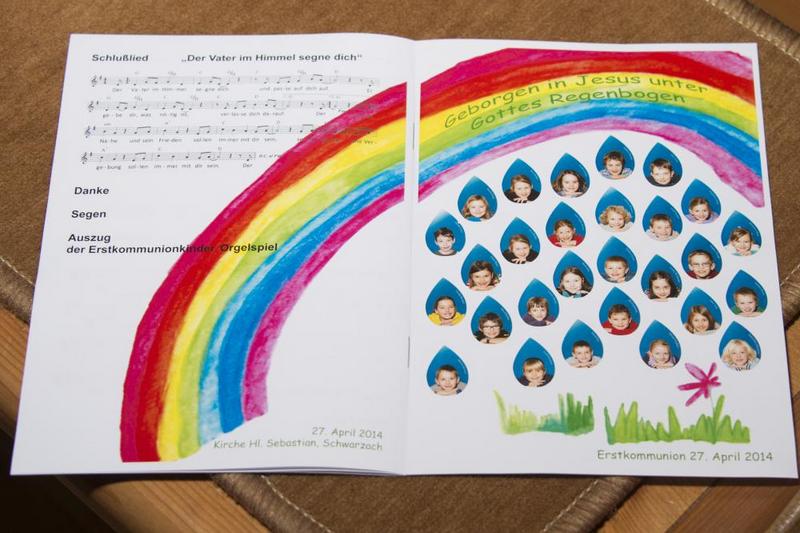 Schlußlied „Der Vater im Himmel segne dich“
Der Va-ter im Him-mel segne dich und pas-se auf dich auf. Er
ge-be dir, was nö-tig ist, ver-läs-se dich da-rauf. Der
Nä-he und sein Frie-den sol-len im-mer mit dir sein.
ge-bung sol-len im-mer mit dir sein. Der
Danke
Segen
Auszug
der Erstkommunionkinder Orgelspiel
27. April 2014
Kirche Hl. Sebastian, Schwarzach
Geborgen in Jesus unter
Gottes Regenbogen
Erstkommunion 27. April 2014